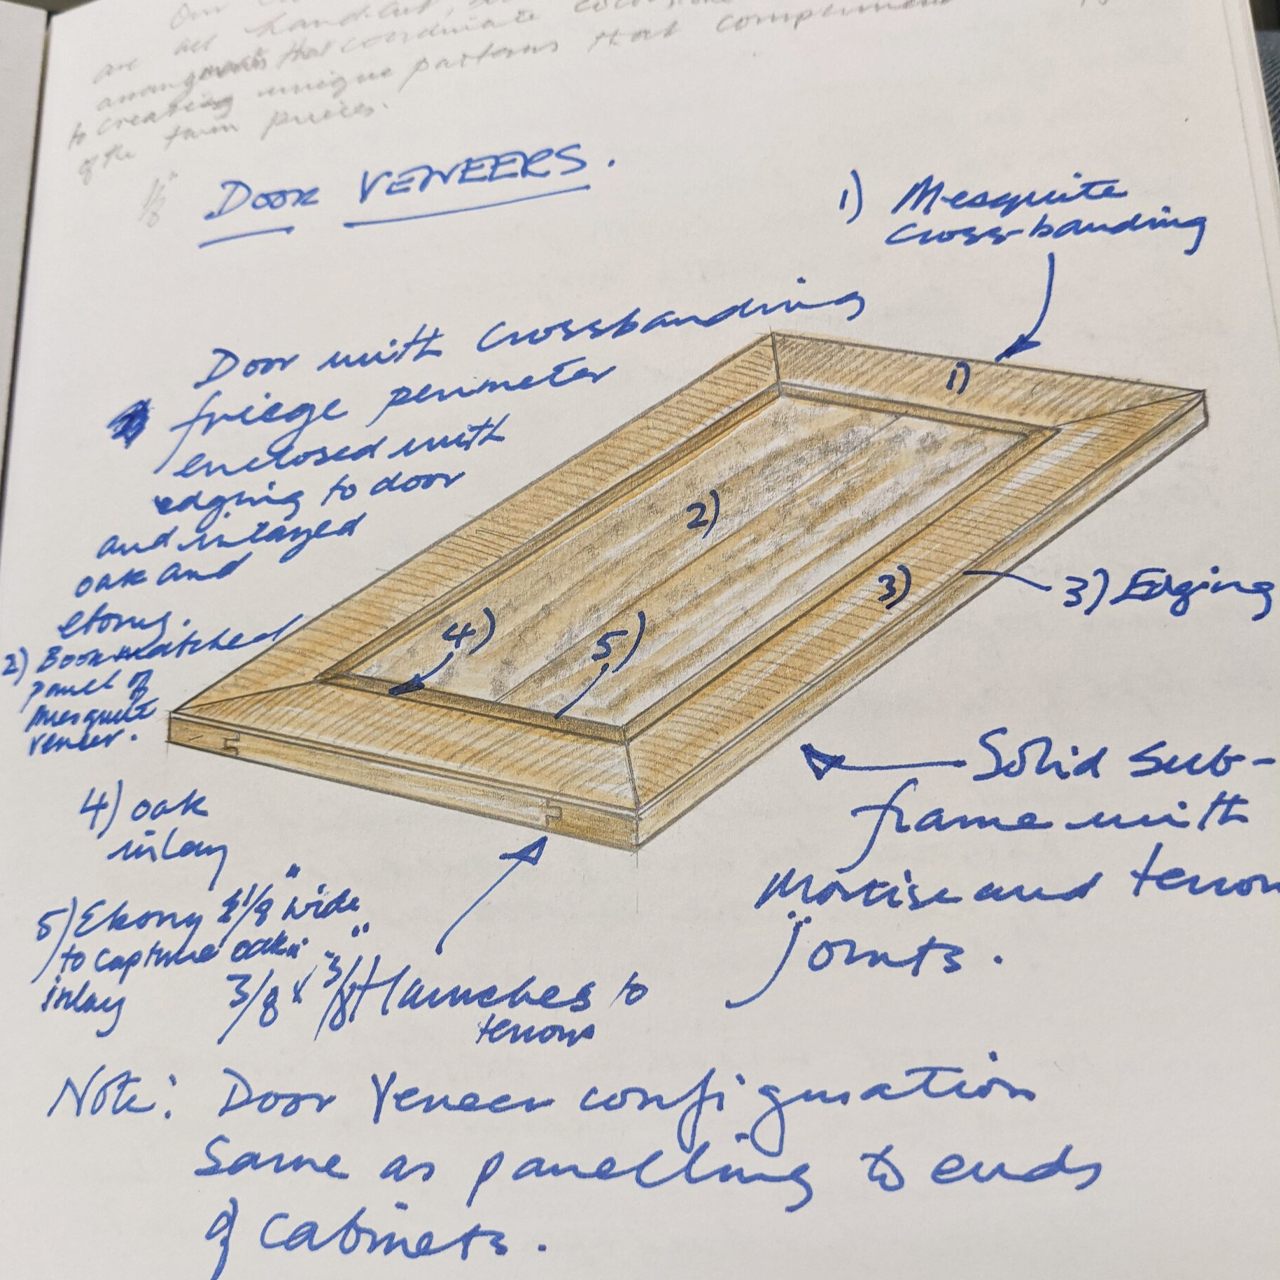 are all hand-cut,
arrangments that coordinate
to creating unique patterns that compliment
of the twin pieces.
1/8"
DOOR VENEERS.
1) Mesquite
cross-banding
Door with crossbanding
friege perimeter
enclosed with
edging to door
and inlayed
oak and
ebony.
1)
2)
3)
4)
5)
3) Edging
2) Bookmatched
panel of
Mesquite
veneer.
4) oak
inlay
5) Ebony 1/8" wide
to capture oak
inlay
3/8" x 3/8" Haunches to
tenons
Solid sub-
frame with
mortise and tenon
joints.
Note: Door Veneer configuration
same as panelling to ends
of cabinets.